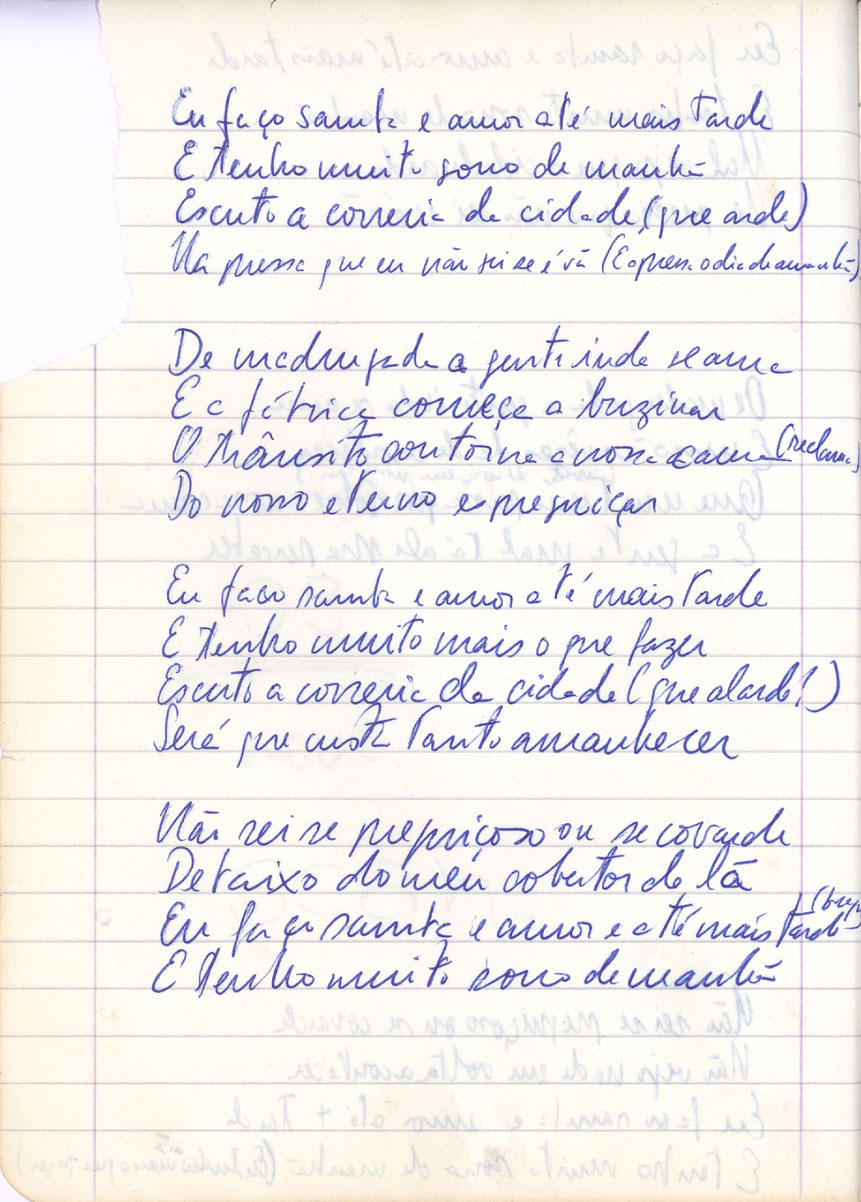 Eu faço samba e amor até mais tarde
E tenho muito sono de manhã
Escuto a correria da cidade, (que arde)
Na pressa que eu não sei se é vã (E apressa o dia de amanhã)
De madrugada a gente inda se ama
E a fábrica começa a buzinar
O trânsito contorna a nossa cama (reclama)
Do nosso eterno espreguiçar
Eu faço samba e amor até mais tarde
E tenho muito mais o que fazer
Escuto a correria da cidade (que alarde!)
Será que custa tanto amanhecer
Não sei se preguiçoso ou se covarde
Debaixo do meu cobertor de lã
Eu faço samba e amor e até mais tarde
E tenho muito sono de manhã